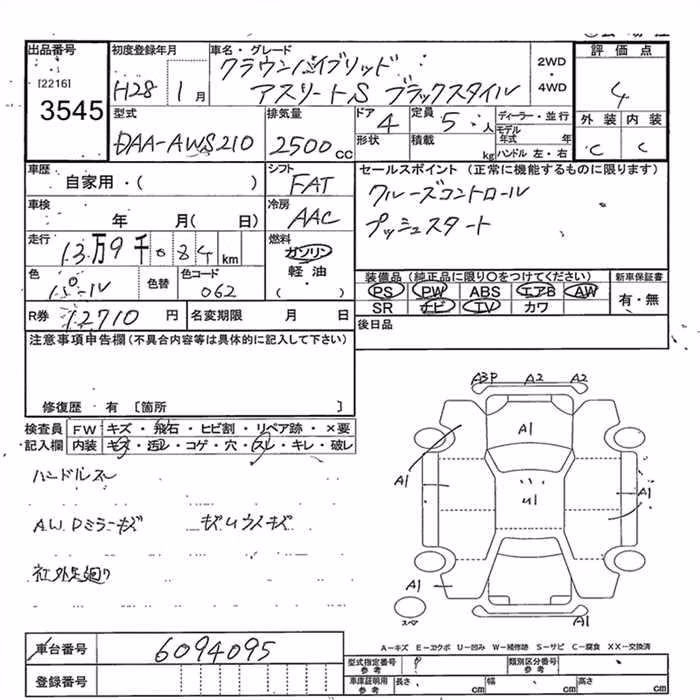 出品番号
[2216]
3545
初度登録年月
H28 1月
車名・グレード
クラウンハイブリッド
アスリートS ブラックスタイル
2WD
・
4WD
評価点
4
外装 内装
C C
型式
DAA-AWS210
排気量
2500cc
ドア 4
形状
定員 5人
積載 kg
ディーラー・並行
モデル年式 年
ハンドル 左・右
車歴
自家用・( )
シフト
FAT
車検
年 月( 日)
冷房
AAC
走行
13万9千084km
燃料
ガソリン
軽油
( )
色
パール
色替
色コード
062
R券 12710円
名変期限 月 日
セールスポイント (正常に機能するものに限ります)
クルーズコントロール
プッシュスタート
装備品 (純正品に限り○をつけてください)
PS PW ABS エアB AW
SR ナビ TV カワ
新車保証書
有・無
後日品
注意事項申告欄(不具合内容等は具体的に記入して下さい)
修復歴 有 [箇所 ]
検査員記入欄
FW キズ・飛石・ヒビ割・リペア跡・×要
内装 キズ・汚レ・コゲ・穴・スレ・キレ・破レ
ハンドルスレ
AW Dミラーキズ
社外足廻り
A3P A2 A2
A1
A1
U1
A1
A1
A1
スペ
A-キズ E-エクボ U-凹み W-補修跡 S-サビ C-腐食 XX-交換済
車台番号
6094095
登録番号
型式指定番号 参考
類別区分番号 参考
車庫証明用 参考
長さ cm
幅 cm
高さ cm